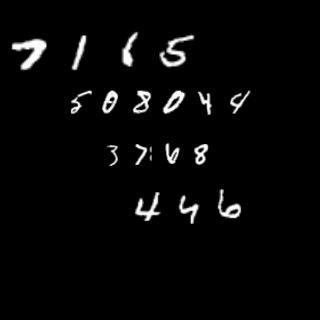 7165
508044
3768
446